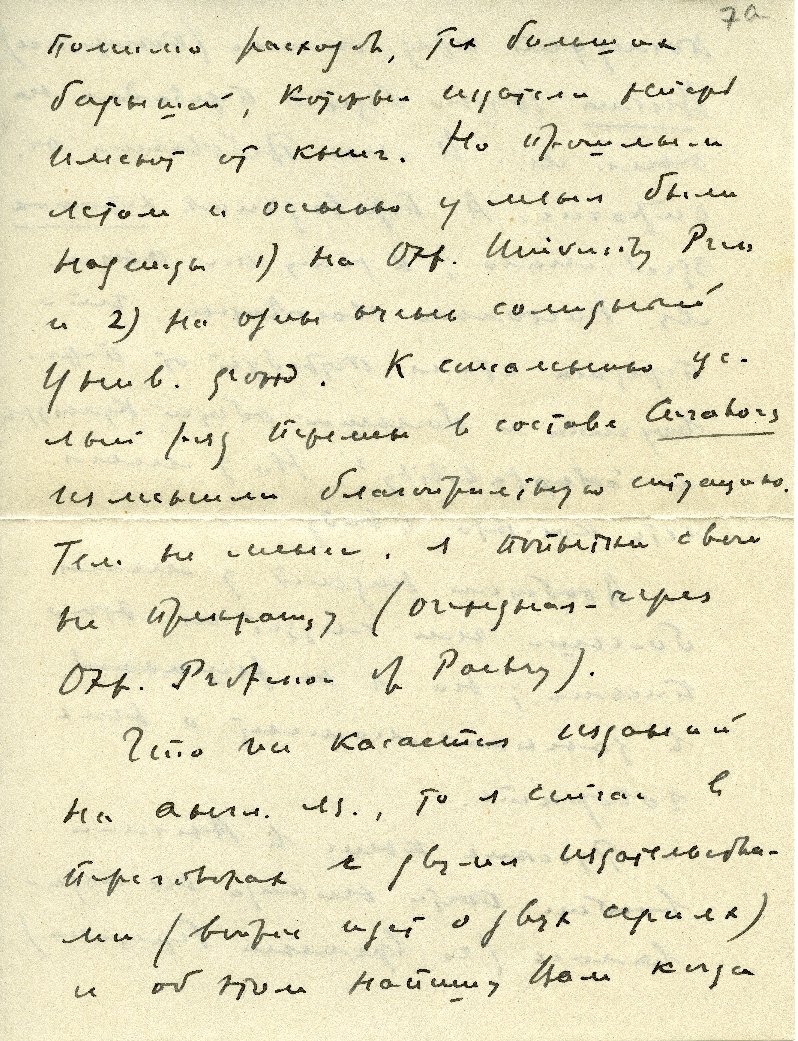 7a
помимо расходов, тех больших
барышей, которые издатели теперь
имеют от книг. Но прошлым
летом и осенью у меня были
надежды 1) на Oxf. University Press
и 2) на один очень солидный
Унив. фонд. К сожалению це-
лый ряд перемен в составе Curators
изменили благоприятную ситуацию.
Тем не менее, я попытки свои
не прекращу (очередная - через
Oxf. Professor of Poetry).
Что же касается изданий
на англ. яз., то я сейчас в
переговорах с двумя издательства-
ми (вопрос идет о двух сериях)
и об этом напишу Вам когда